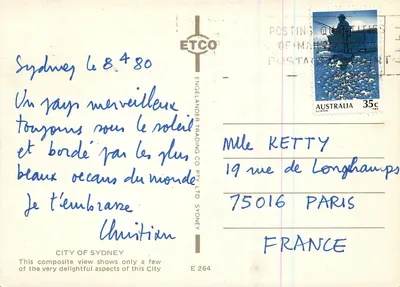 Sydney le 8 4 80
Un pays merveilleux
toujours sous le soleil
et bordé par les plus
beaux oceans du monde
Je t'embrasse
Christian
CITY OF SYDNEY
This composite view shows only a few
of the very delightful aspects of this City
E 264
ETCO
ENGELANDER TRADING CO PTY. LTD SYDNEY
POSTING
OF MA
POSTAG
AUSTRALIA 35c
Mlle KETTY
19 rue de Longchamps
75016 PARIS
FRANCE